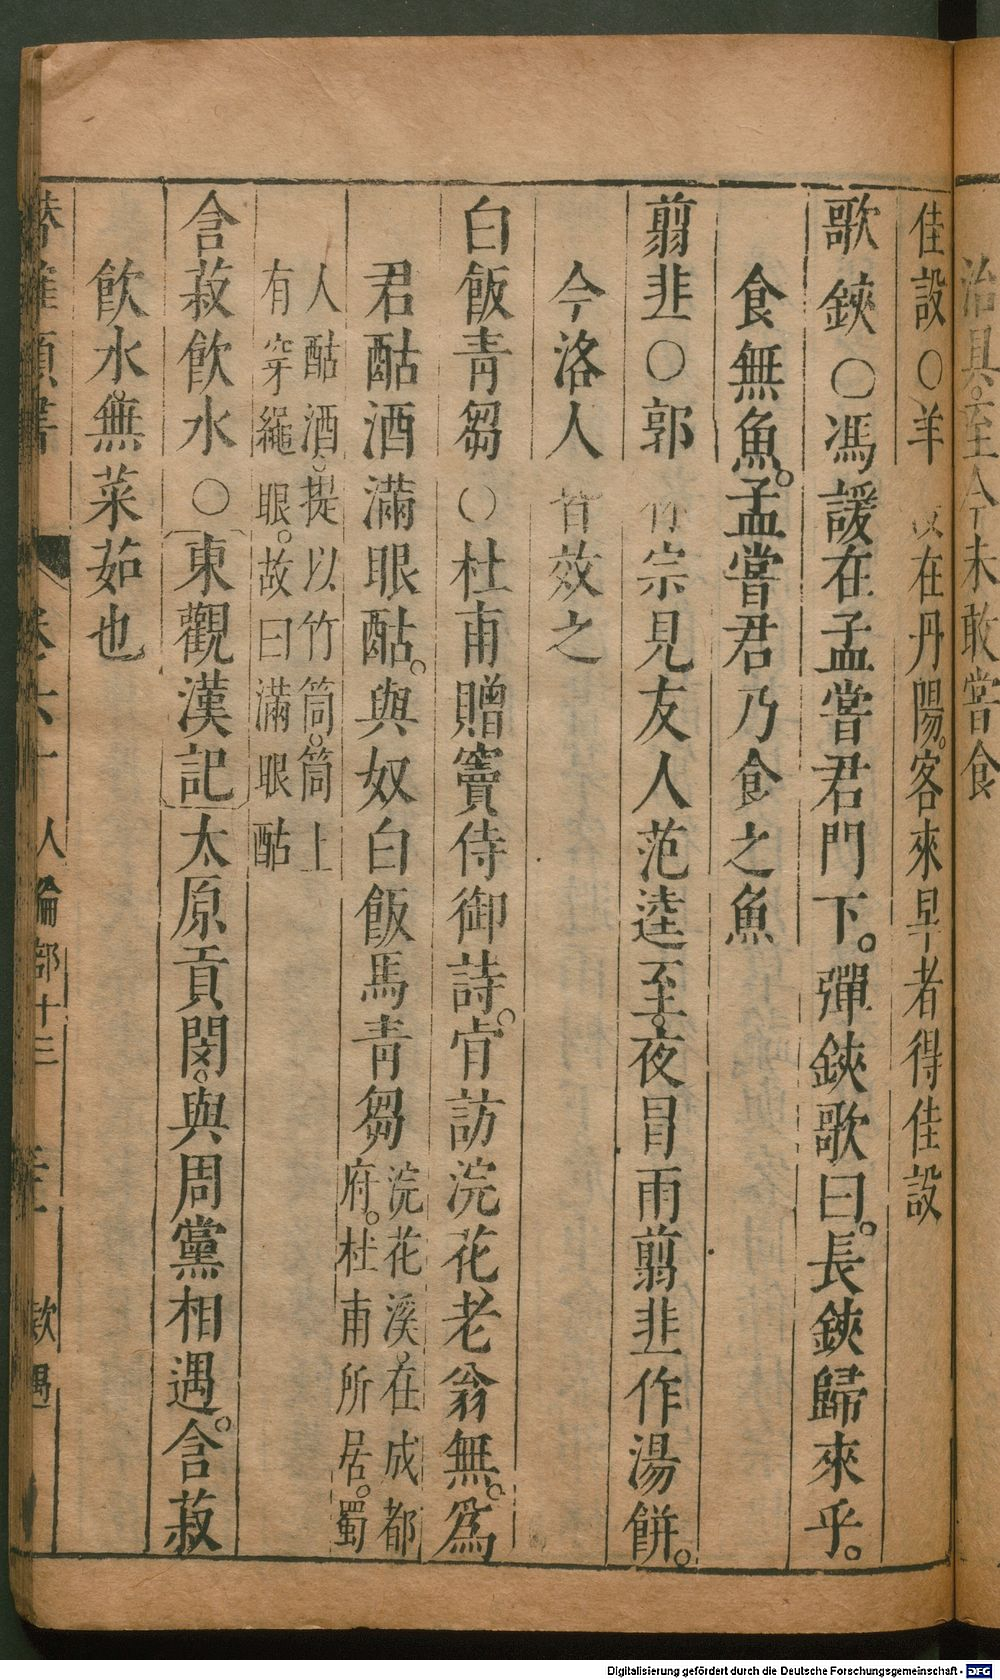 治具。至今未敢嘗食
佳設〇羊 在丹陽。客來早者得佳設
歌鋏〇馮諼在孟嘗君門下。彈鋏歌曰。長鋏歸來乎。
食無魚。孟嘗君乃食之魚
翦韭〇郭 宗見友人范逵至。夜冒雨翦韭作湯餅。
今洛人皆效之
白飯青芻〇杜甫贈竇侍御詩。肯訪浣花老翁無。爲
君酤酒滿眼酤。與奴白飯馬青芻
浣花溪。在成都
府。杜甫所居。蜀
人酤酒。提以竹筒。筒上
有穿繩眼。故曰滿眼酤
含菽飲水〇東觀漢記太原貢閔。與周黨相遇。含菽
飲水。無菜茹也
人倫部十三 款遇
Digitalisierung gefördert durch die Deutsche Forschungsgemeinschaft - DFG